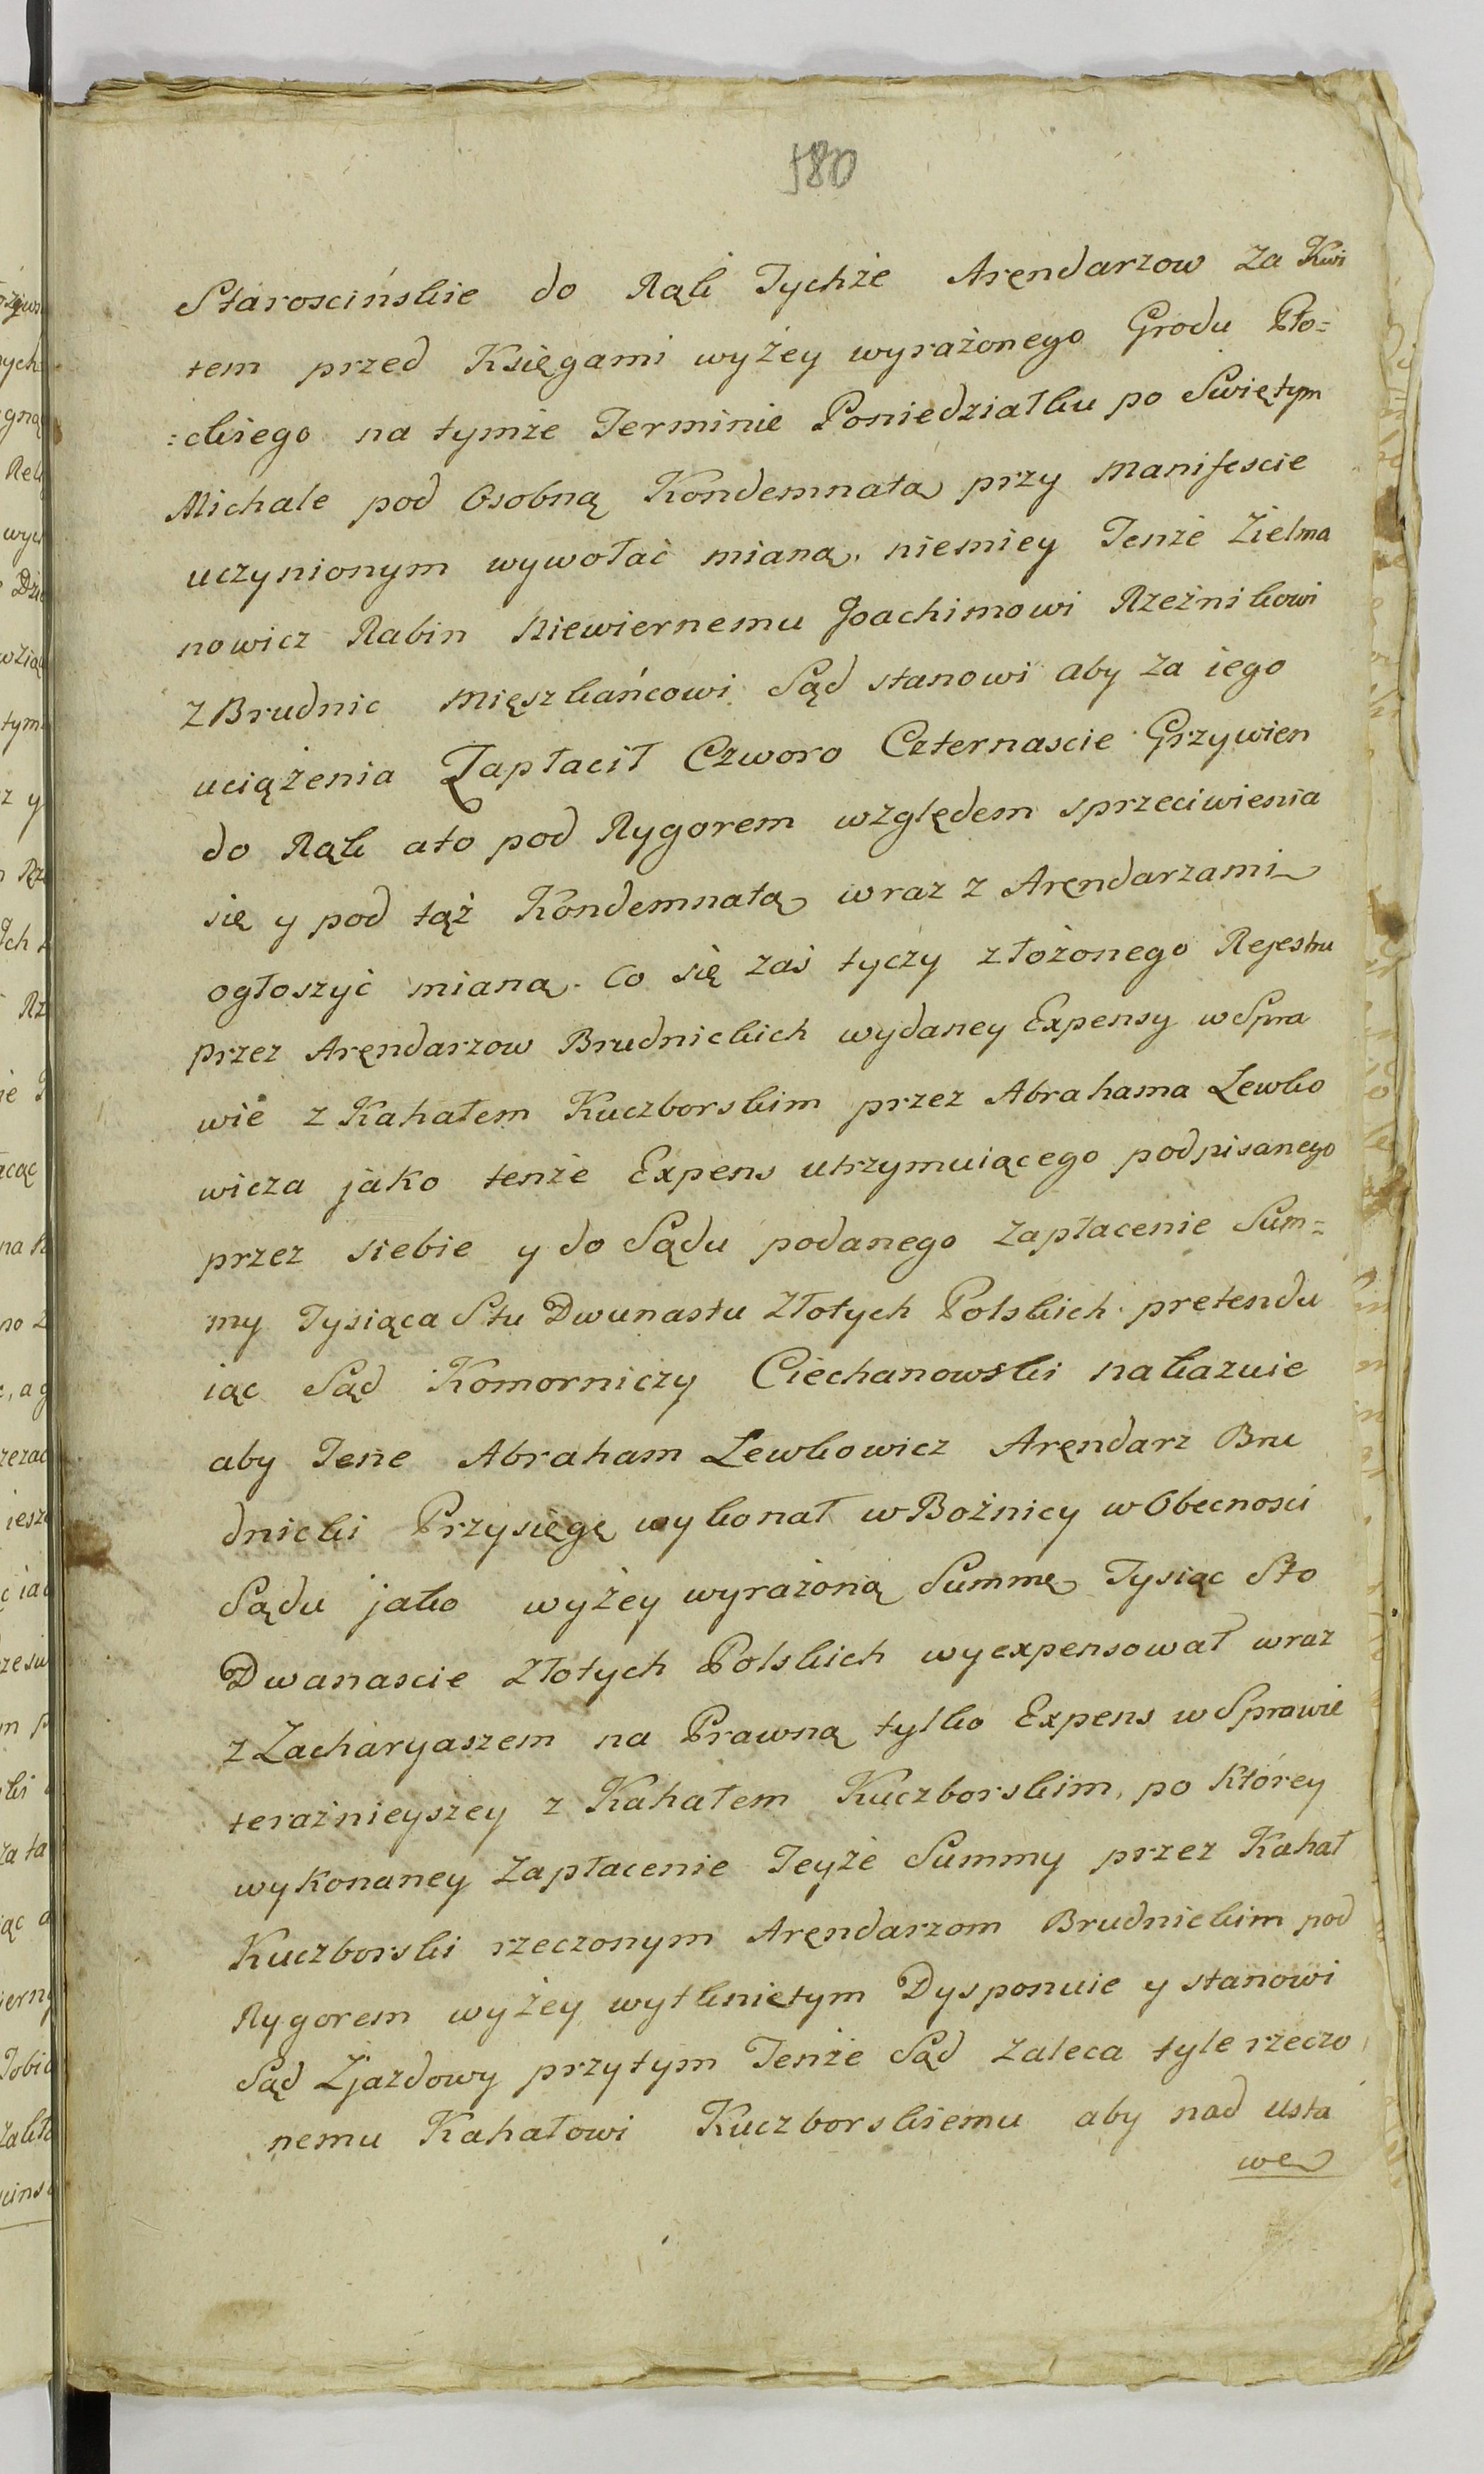 580
Staroscińskie do Rąk Tychże Aręndarzow za Kwi
tem przed Księgami wyżey wyrażonego Grodu Pło=
:ckiego na tymże Terminie Poniedziałku po Swiętym
Michale pod Osobną Kondemnatą przy Manifescie
uczynionym wywołać mianą, niemiey Tenże Zielma
nowicz Rabin Niewiernemu Joachimowi Rzeźnikowi
z Brudnic Mięszkańcowi Sąd stanowi aby za iego
uciążenia Zapłacił Czworo Czternascie Grzywien
do Rąk ato pod Rygorem względem sprzeciwienia
się y pod tąż Kondemnatą wraz z Aręndarzami
ogłoszyć mianą. Co się zaś tyczy złożonego Rejestru
przez Aręndarzow Brudnickich wydaney Expensy w Spra
wie z Kahałem Kuczborskim przez Abrahama Lewko
wicza jako tenże Expens utrzymuiącego podpisanego
przez siebie y do Sądu podanego zapłacenie Sum=
my Tysiąca Stu Dwunastu Złotych Polskich pretendu
iąc Sąd Komorniczy Ciechanowski nakazuie
aby Tene Abraham Lewkowicz Aręndarz Bru
dnicki Przysięgę wykonał w Bożnicy w Obecnosci
Sądu jako wyżey wyrażoną Summę Tysiąc Sto
Dwanascie Złotych Polskich wyexpensował wraz
z Zacharyaszem na Prawną tylko Expens w Sprawie
teraźnieyszey z Kahałem Kuczborskim, po Którey
wykonaney zapłacenie Teyże Summy przez Kahał
Kuczborski rzeczonym Aręndarzom Brudnickim pod
Rygorem wyżey wytknietym Dysponuie y stanowi
Sąd Zjazdowy przytym Tenże Sąd zaleca tyle rzeczo
nemu Kahałowi Kuczborskiemu aby nad usta
wę